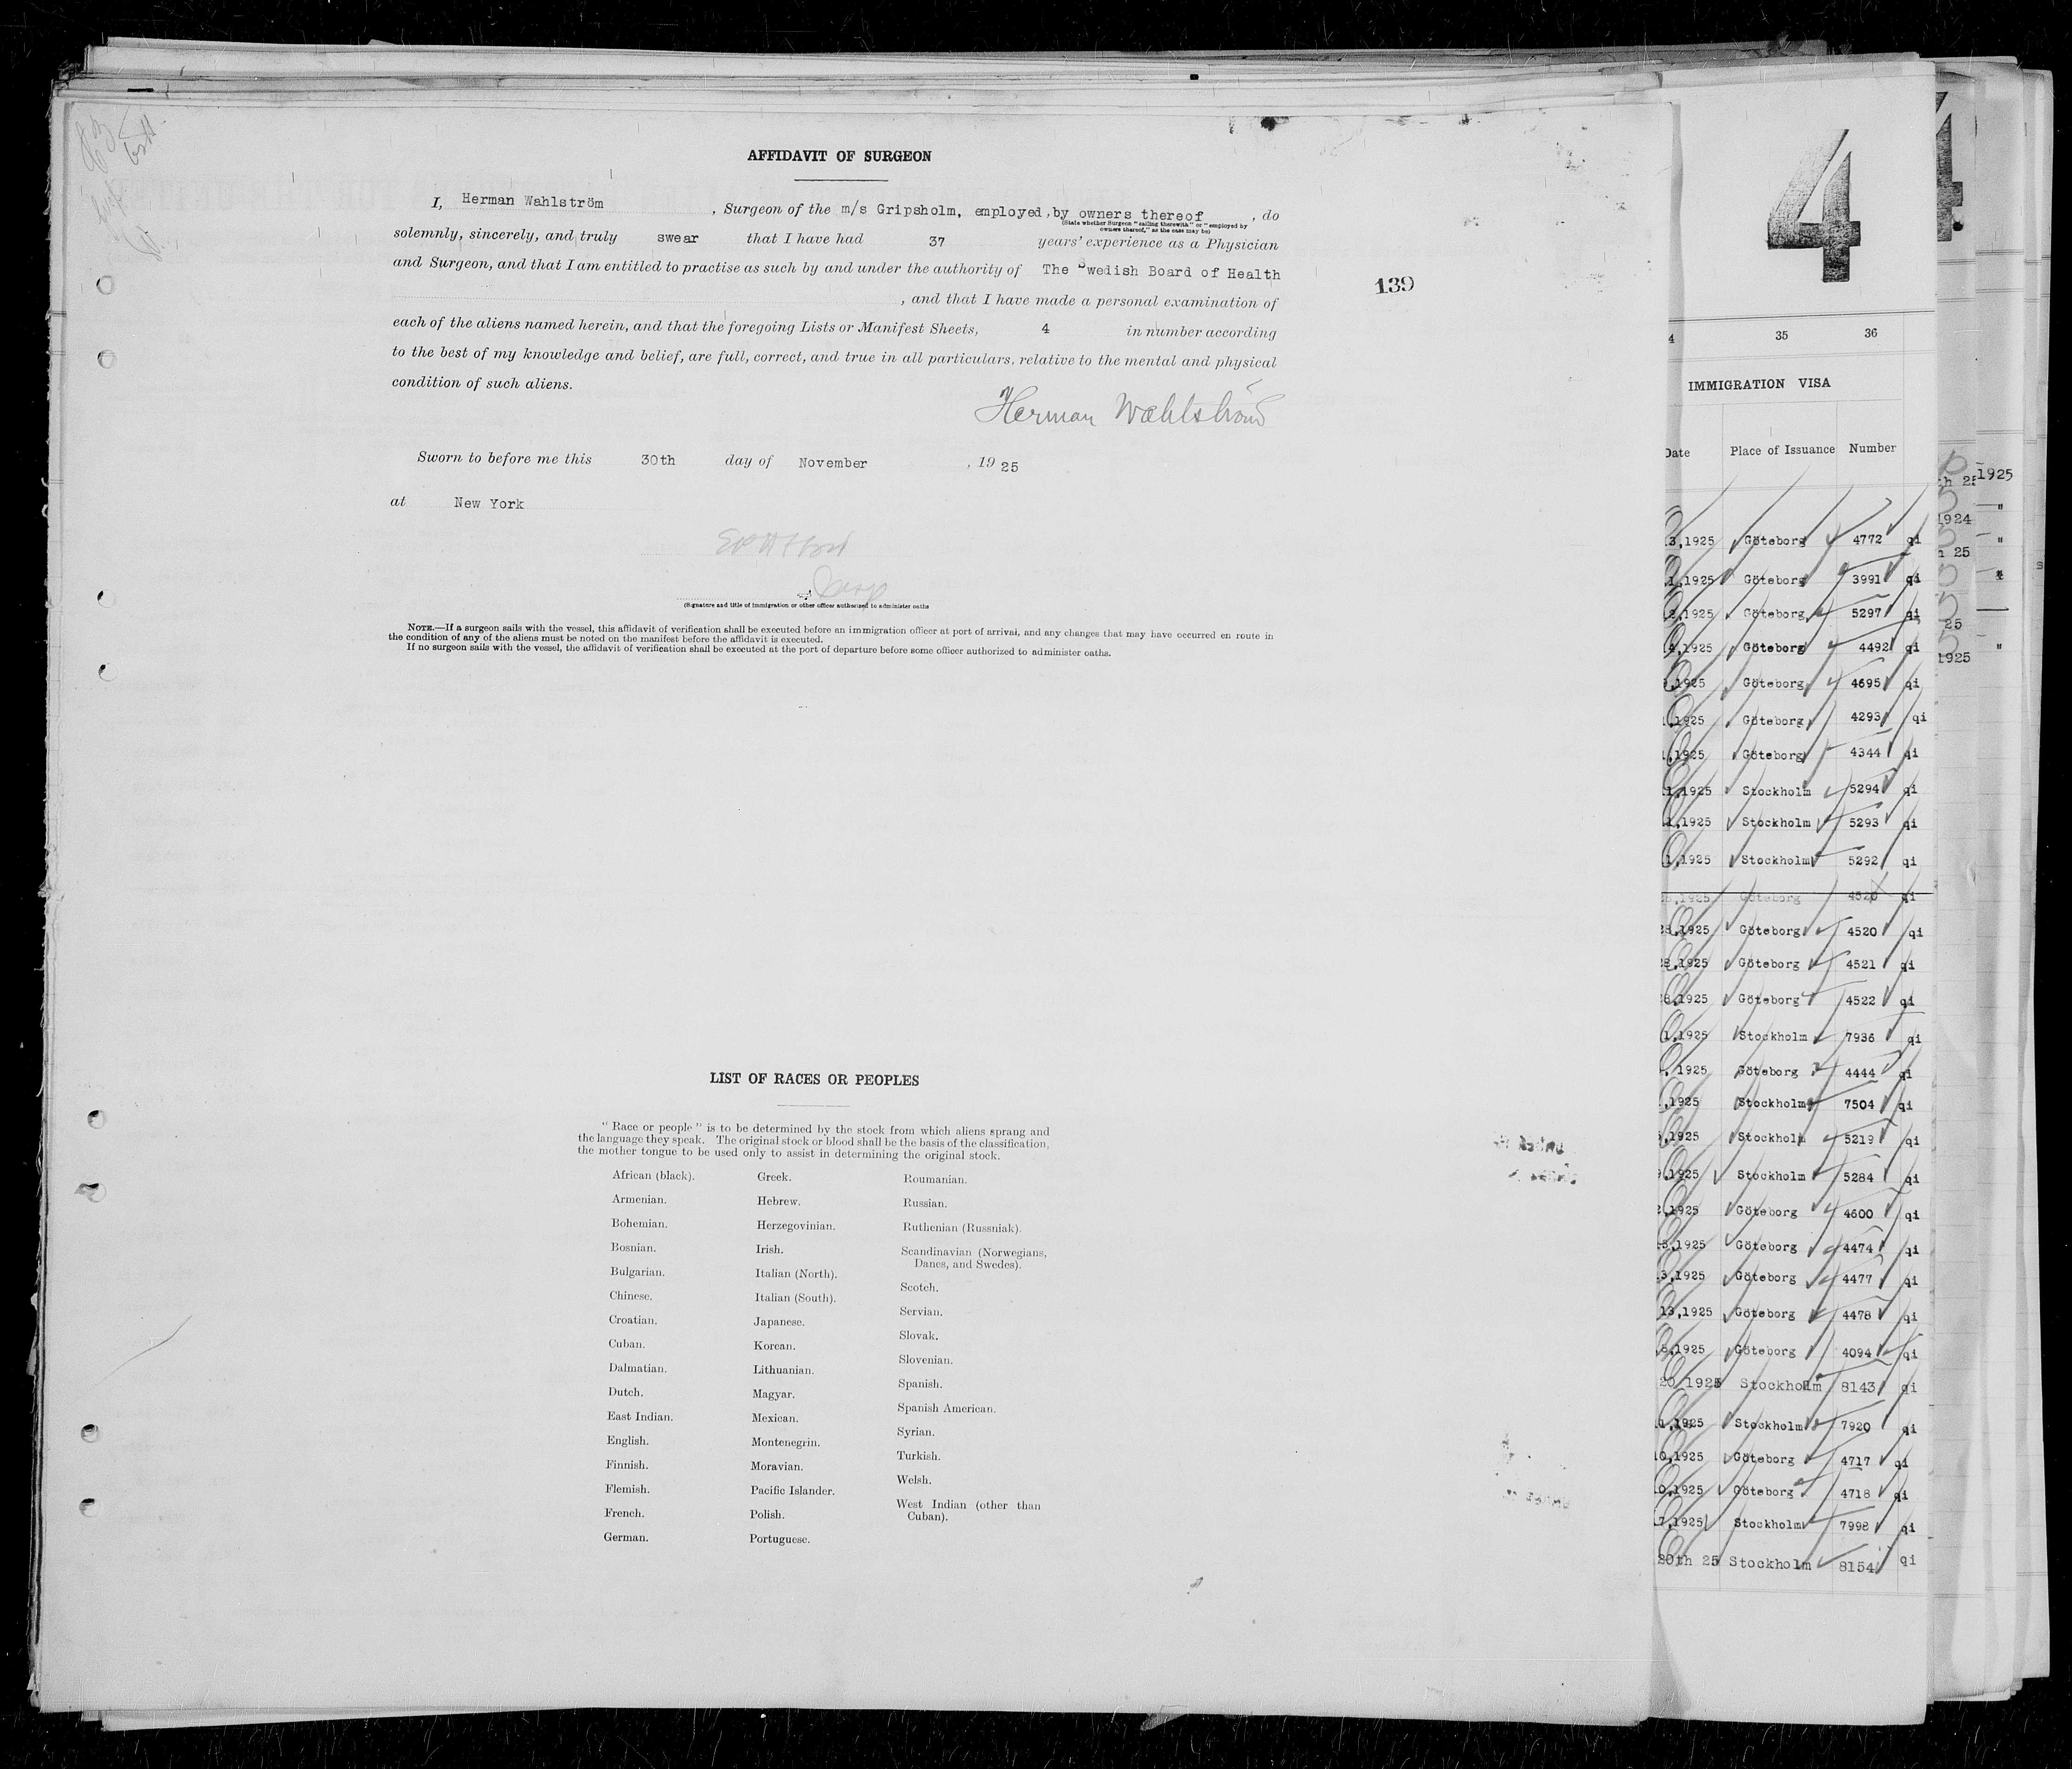 AFFIDAVIT OF SURGEON
I, Herman Wahlström , Surgeon of the m/s Gripsholm, employed, by owners thereof , do
(State whether Surgeon "sailing therewith" or "employed by
owners thereof," as the case may be)
solemnly, sincerely, and truly swear that I have had 37 years' experience as a Physician
and Surgeon, and that I am entitled to practise as such by and under the authority of The Swedish Board of Health
, and that I have made a personal examination of
each of the aliens named herein, and that the foregoing Lists or Manifest Sheets, 4 in number according
to the best of my knowledge and belief, are full, correct, and true in all particulars, relative to the mental and physical
condition of such aliens.
Herman Wahlström
Sworn to before me this 30th day of November , 19 25
at New York
(Signature and title of immigration or other officer authorized to administer oaths
NOTE.—If a surgeon sails with the vessel, this affidavit of verification shall be executed before an immigration officer at port of arrival, and any changes that may have occurred en route in
the condition of any of the aliens must be noted on the manifest before the affidavit is executed.
If no surgeon sails with the vessel, the affidavit of verification shall be executed at the port of departure before some officer authorized to administer oaths.
139
LIST OF RACES OR PEOPLES
"Race or people" is to be determined by the stock from which aliens sprang and
the language they speak. The original stock or blood shall be the basis of the classification,
the mother tongue to be used only to assist in determining the original stock.
African (black).
Armenian.
Bohemian.
Bosnian.
Bulgarian.
Chinese.
Croatian.
Cuban.
Dalmatian.
Dutch.
East Indian.
English.
Finnish.
Flemish.
French.
German.
Greek.
Hebrew.
Herzegovinian.
Irish.
Italian (North).
Italian (South).
Japanese.
Korean.
Lithuanian.
Magyar.
Mexican.
Montenegrin.
Moravian.
Pacific Islander.
Polish.
Portuguese.
Roumanian.
Russian.
Ruthenian (Russniak).
Scandinavian (Norwegians,
Danes, and Swedes).
Scotch.
Servian.
Slovak.
Slovenian.
Spanish.
Spanish American.
Syrian.
Turkish.
Welsh.
West Indian (other than
Cuban).
4
4 35 36
IMMIGRATION VISA
Date Place of Issuance Number
3,1925 Göteborg 4772 qi
1,1925 Göteborg 3991 qi
2,1925 Göteborg 5297 qi
4,1925 Göteborg 4492 qi
,1925 Göteborg 4695 qi
,1925 Göteborg 4293 qi
,1925 Göteborg 4344 qi
1,1925 Stockholm 5294 qi
1,1925 Stockholm 5293 qi
1,1925 Stockholm 5292 qi
,1925 Göteborg 4520 qi
28,1925 Göteborg 4520 qi
28,1925 Göteborg 4521 qi
28,1925 Göteborg 4522 qi
1,1925 Stockholm 7936 qi
, 1925 Göteborg 4444 qi
,1925 Stockholm 7504 qi
,1925 Stockholm 5219 qi
9,1925 Stockholm 5284 qi
2,1925 Göteborg 4600 qi
3,1925 Göteborg 4474 qi
3,1925 Göteborg 4477 qi
13,1925 Göteborg 4478 qi
8,1925 Göteborg 4094 qi
20 1925 Stockholm 8143 qi
1,1925 Stockholm 7920 qi
10,1925 Göteborg 4717 qi
0,1925 Göteborg 4718 qi
7,1925 Stockholm 7998 qi
20th 25 Stockholm 8154 qi
4
1925
1924
25
25
1925